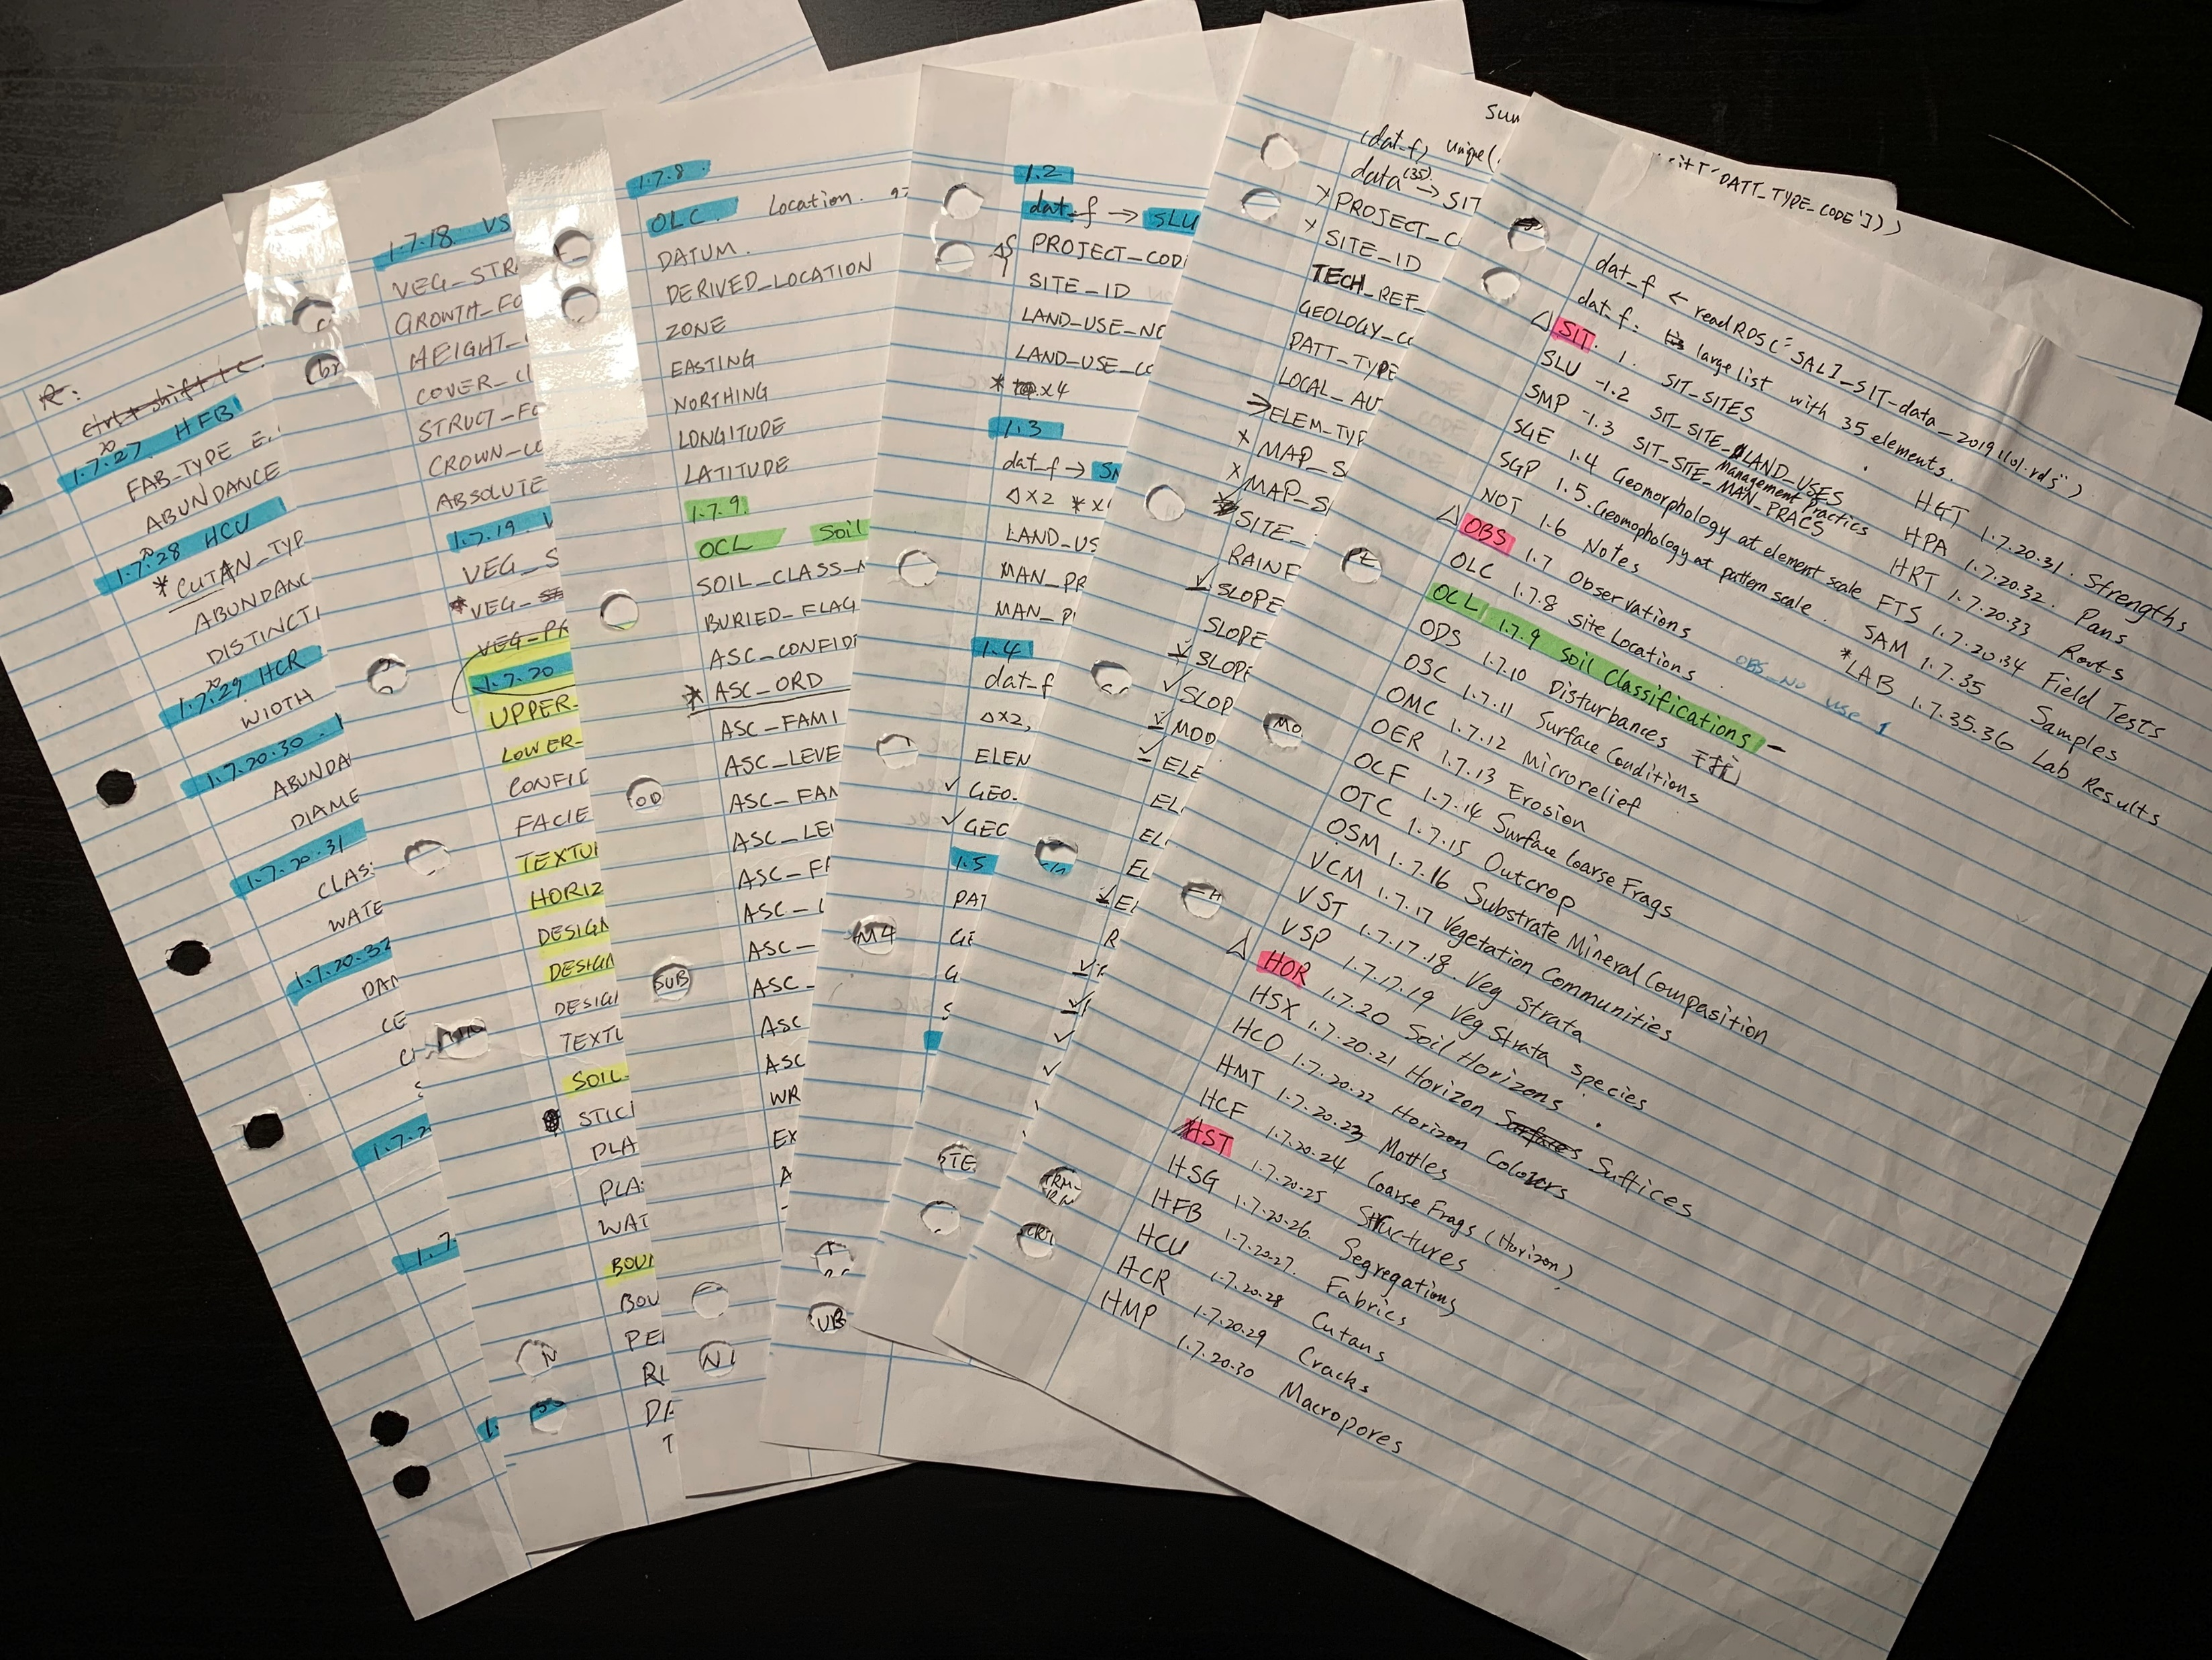 R:
ctrl + shift + c
1.7.20.27 HFB
FAB_TYPE
ABUNDANCE
1.7.20.28 HCU
* CUTAN_TYP
ABUNDANC
DISTINCTI
1.7.20.29 HCR
WIDTH
1.7.20.30
ABUNDA
DIAME
1.7.20.31
CLAS
WATE
1.7.20.32
PAN
CE
1.7.2
1.7
1.7.18 VS
VEG_STR
GROWTH_FO
HEIGHT_
COVER_
STRUCT_FO
CROWN_CO
ABSOLUTE
1.7.19. V
VEG_S
* VEG_
VEG_PA
1.7.20
UPPER-
LOWER-
CONFID
FACIE
TEXTU
HORIZ
DESIGN
DESIGN
DESIGI
TEXTU
SOIL-
STICI
PLA
PLA
WAT
BOUI
BOU
PEI
DE
T
1.7.8
OLC Location.
DATUM.
DERIVED_LOCATION
ZONE
EASTING
NORTHING
LONGITUDE
LATITUDE
1.7.9
OCL Soil
SOIL_CLASS_
BURIED_FLAG
ASC_CONFID
* ASC_ORD
ASC_FAMI
ASC_LEVE
ASC_FAM
ASC_LE
ASC_FA
ASC_
ASC_
ASC_
ASC
ASC
WR
EX
A
1.2
dat_f → SLU
PROJECT_COD
SITE_ID
LAND_USE_NO
LAND_USE_CO
* x4
1.3
dat_f → SM
△x2 *x
LAND_US
MAN_PR
MAN_P
1.4
dat_f
△x2,
ELEM
✓ GEO
✓ GEO
1.5
PAT
GE
G
Sum
(dat_f) unique(
data (35) → SIT
x PROJECT_C
x SITE_ID
TECH_REF_
GEOLOGY_C
PATT_TYPE
LOCAL_AU
→ ELEM_TYP
x MAP_S
x MAP_S
SITE_
RAINF
✓ SLOPE
SLOPE
✓ SLOPE
✓ SLOP
✓ MOD
✓ ELE
EL
EL
EL
✓ EL
R
'PATT_TYPE_CODE']))
dat_f ← readRDS("SALI_SIT-data_20191101.rds")
dat_f: large list with 35 elements.
△ SIT. 1. SIT_SITES
SLU -1.2 SIT_SITE_LAND_USES
SMP -1.3 SIT_SITE_MAN_PRACS Management Practics
SGE 1.4 Geomorphology at element scale
SGP 1.5. Geomophology at pattern scale.
NOT 1.6 Notes
△ OBS 1.7 Observations
OLC 1.7.8 Site Locations. OBS_NO use 1
OCL 1.7.9 Soil Classifications -
ODS 1.7.10 Disturbances 干扰
OSC 1.7.11 Surface Conditions
OMC 1.7.12 Microrelief
OER 1.7.13 Erosion
OCF 1.7.14 Surface Coarse Frags
OTC 1.7.15 Outcrop
OSM 1.7.16 Substrate Mineral Compasition
VCM 1.7.17 Vegetation Communities
VST 1.7.17.18. Veg Strata
VSP 1.7.17.19 Veg Strata species
△ HOR 1.7.20 Soil Horizons.
HSX 1.7.20.21 Horizon Suffices
HCO 1.7.20.22 Horizon Colours
HMT 1.7.20.23 Mottles
HCF 1.7.20.24 Coarse Frags (Horizon)
HST 1.7.20.25 Structures
HSG 1.7.20.26. Segregations
HFB 1.7.20.27. Fabrics
HCU 1.7.20.28 Cutans
HCR 1.7.20.29 Cracks
HMP 1.7.20.30 Macropores
HGT 1.7.20.31. Strengths
HPA 1.7.20.32. Pans
HRT 1.7.20.33 Roots
FTS 1.7.20.34 Field Tests
SAM 1.7.35 Samples
* LAB 1.7.35.36 Lab Results